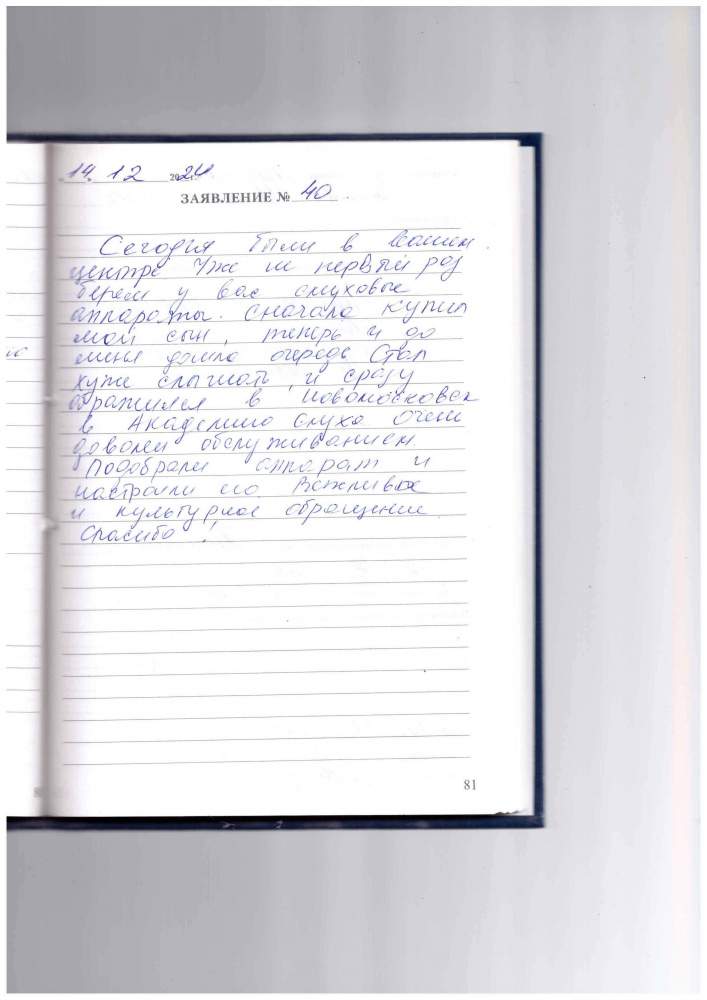 14. 12 2024г.
ЗАЯВЛЕНИЕ № 40
Сегодня были в вашем
центре Уже не первый раз
берем у вас слуховые
аппараты. Сначала купил
мой сын, теперь и до
меня дошла очередь Стал
хуже слышать, и сразу
обратился в Новомосковск
в Академию слуха Очень
доволен обслуживанием
Подобрали аппарат и
настроили его Вежливое
и культурное обращение.
Спасибо!
81